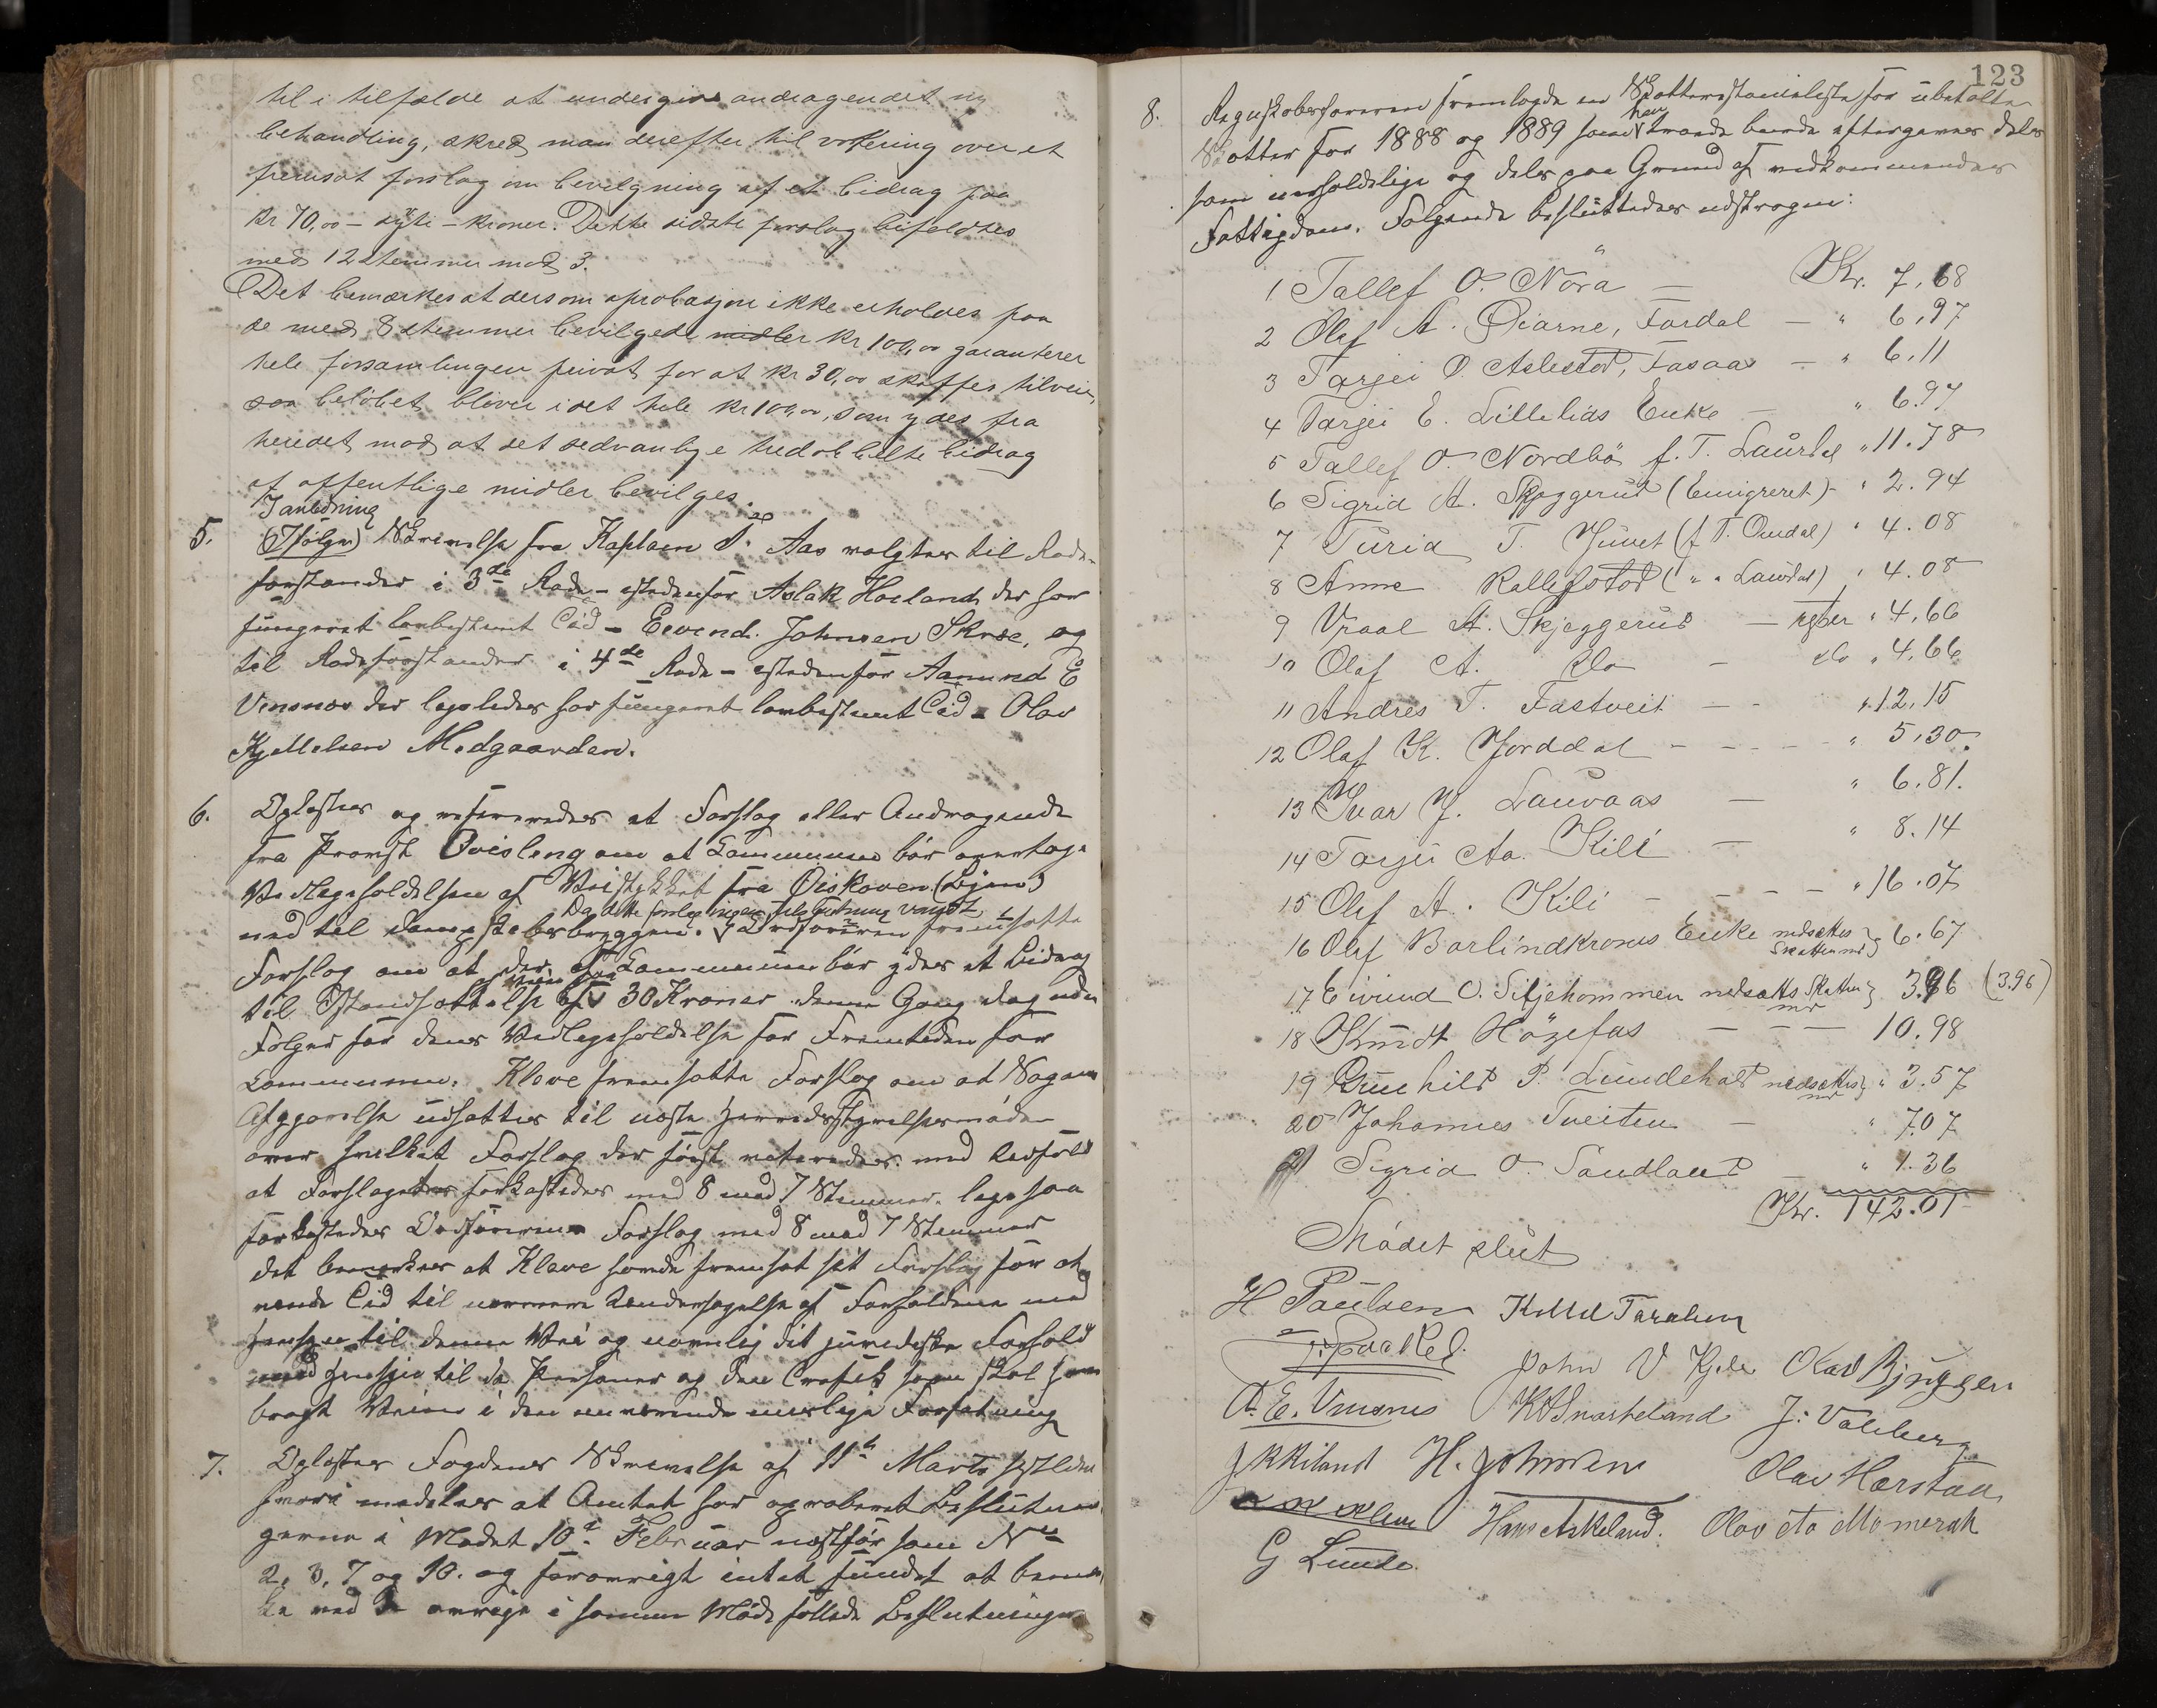 til i tilfælde at undergive andragendet ny
behandling, skred man derefter til votering over et
fremsat forslag om bevilgning af et bidrag paa
kr 70,00 – sytti – kroner. Dette sidste forslag bifaldtes
med 12 stemmer mod 3.
Det bemærkes at dersom aprobasjon ikke erholdes paa
de med 8 stemmer bevilgede midler kr 100,00 garanterer
hele forsamlingen privat for at kr 30,00 skaffes tilveie,
saa beløbet bliver i det hele kr 100,00, som ydes fra
heredet mod at det sedvanlige tredobbelte bidrag
af offentlige midler bevilges.
I anledning
5. (Ifølge) Skrivelse fra Kaptein Aas valgtes til Rode-
forstander i 3de Rode – istedenfor Aslak Horland der har
fungeret lovbestemt Tid – Eivend Johnsen Skree, og
til Rodeforstander i 4de Rode – istedenfor Aamund E
Vensnes der ligeledes har fungeret lovbestemt Tid – Olav
Kjettelsen Midgaarden.
6. Oplæstes og refereredes et Forslag eller Andragende
fra Provst Qvisling om at Kommunen bør overtage
Vedligeholdelsen af Veistykket fra Øiskoven (Byen)
Da dette forslag ingen tilslutning vandt
ned til dampskibsbryggen. Ordføreren fremsatte
Forslag om at der af Kommunen bør ydes et Bidrag
til Istandsættelse af 30 Kroner denne Gang dog uden
Følger for dens Vedligeholdelse for Fremtiden for
Kommunen. Klove fremsatte Forslag om at Sagens
Afgjørelse udsættes til næste Herredsstyrelsesmøde
over hvilket Forslag der først voteredes med Udfald
at Forslaget forkastedes med 8 mod 7 Stemmer. ligesaa
forkastedes Ordførerens Forslag med 8 mod 7 Stemmer
det bemærkes at Klove havde fremsat sit Forslag for at
vinde Tid til nærmere Undersøgelse af Forholdene med
Hensyn til denne Vei og navnlig dit juridiske Forhold
med Hensyn til de Personer og den Trafik som skal have
bragt Veien i den nuværende Forfatning
7. Oplæstes Fogdens Skrivelse af 11te Marts sistleden
hvori meddeles at Amtet har approberet Beslutnin
gerne i Mødet 10de Februar næstfør som No
2, 3, 7 og 10. og forøvrigt intet fundet at bemær
ke ved de øvrige i samme Møde fattede Beslutninger
123
8. Regnskabsføreren fremlagde en Skatterestanseliste for ubetalte
Skatter for 1888 og 1889 som han troede burde eftergives dels
som uerholdelige og dels paa Grund af vedkommendes
Fattigdom. Følgende besluttedes udstrøgne:
1 Tallef O. Nöra — Kr. 7,68
2 Olaf A. Øiarne, Fardal — " 6,97
3 Tarjei O. Aslestod, Fasaas — " 6.11
4 Tarjei E. Lillelids Enke — " 6.97
5 Tallef O. Nordbö f. T. Laurdal " 11.78
6 Sigrid A. Skjeggerud (Emigreret) - " 2.94
7 Turid T. Juvet (f T. Omdal) " 4.08
8 Anne Rallefstod ( " " Laurdal) " 4.08
9 Vraal A. Skjeggerud — rejser " 4,66
10 Olaf A. do — do " 4,66
11 Andres T. Fastveit — - " 12,15
12 Olaf K. Jorddal - - - - " 5,30
13 Ivar J. Lauvaas — " 6,81.
14 Tarjei Aa. Kili — " 8.14
15 Olaf A. Kili - - - - " 16.07
16 Olaf Barlindkrones Enke nedsættes Skatten med } 6.67
17 Eivind O. Siljehommen nedsættes Skatten med } 3,96 (3.96)
18 Knudt Högefas — — — 10.98
19 Gunhild P. Lundehald nedsættes med } " 3.57
20 Johannes Tveiten — " 7.07
21 Sigrid O. Sandland — " 1.36
Kr. 142.01
Mödet slut
H Paulsen Kittil Taralsen
John V Kjile Olav Bjüggen
A. E. Vensnes J: Valeberg
H. Johnsen Olav Harstad
Hans Askeland. Olav Aa Momerak
G Lunde.